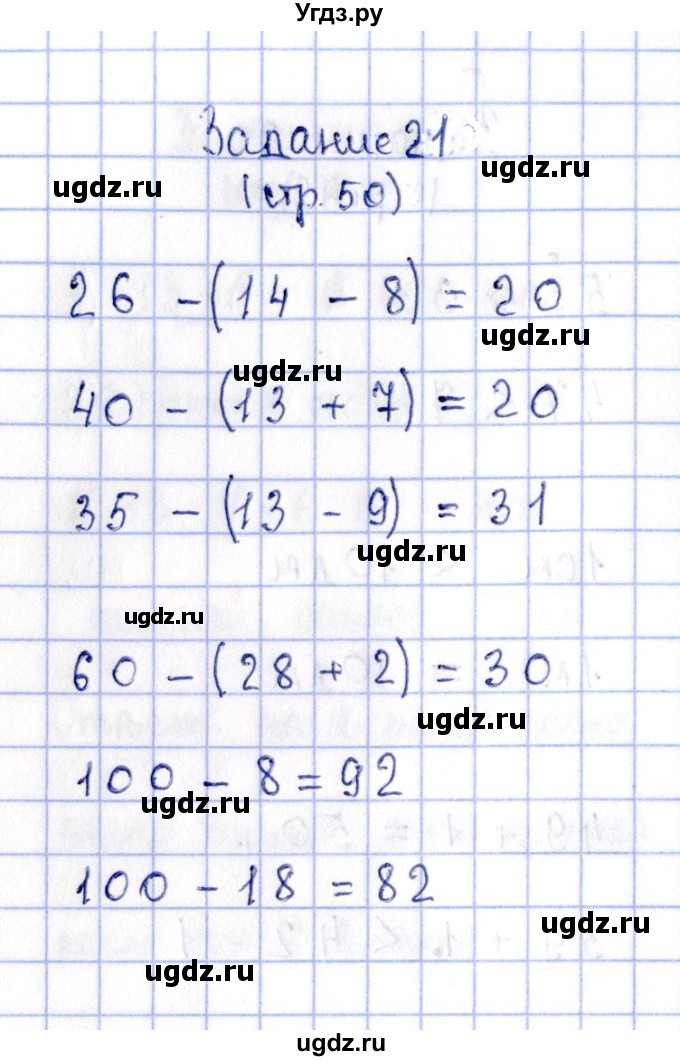 Угдз.ру
Задание 21
ugdz.ru
ugdz.ru
(стр. 50)
26 - (14 - 8) = 20
ugdz.ru
ugdz.ru
40 - (13 + 7) = 20
35 - (13 - 9) = 31
ugdz.ru
ugdz.ru
60 - (28 + 2) = 30
ugdz.ru
100 - 8 = 92
ugdz.ru
100 - 18 = 82
ugdz.ru
ugdz.ru
ugdz.ru